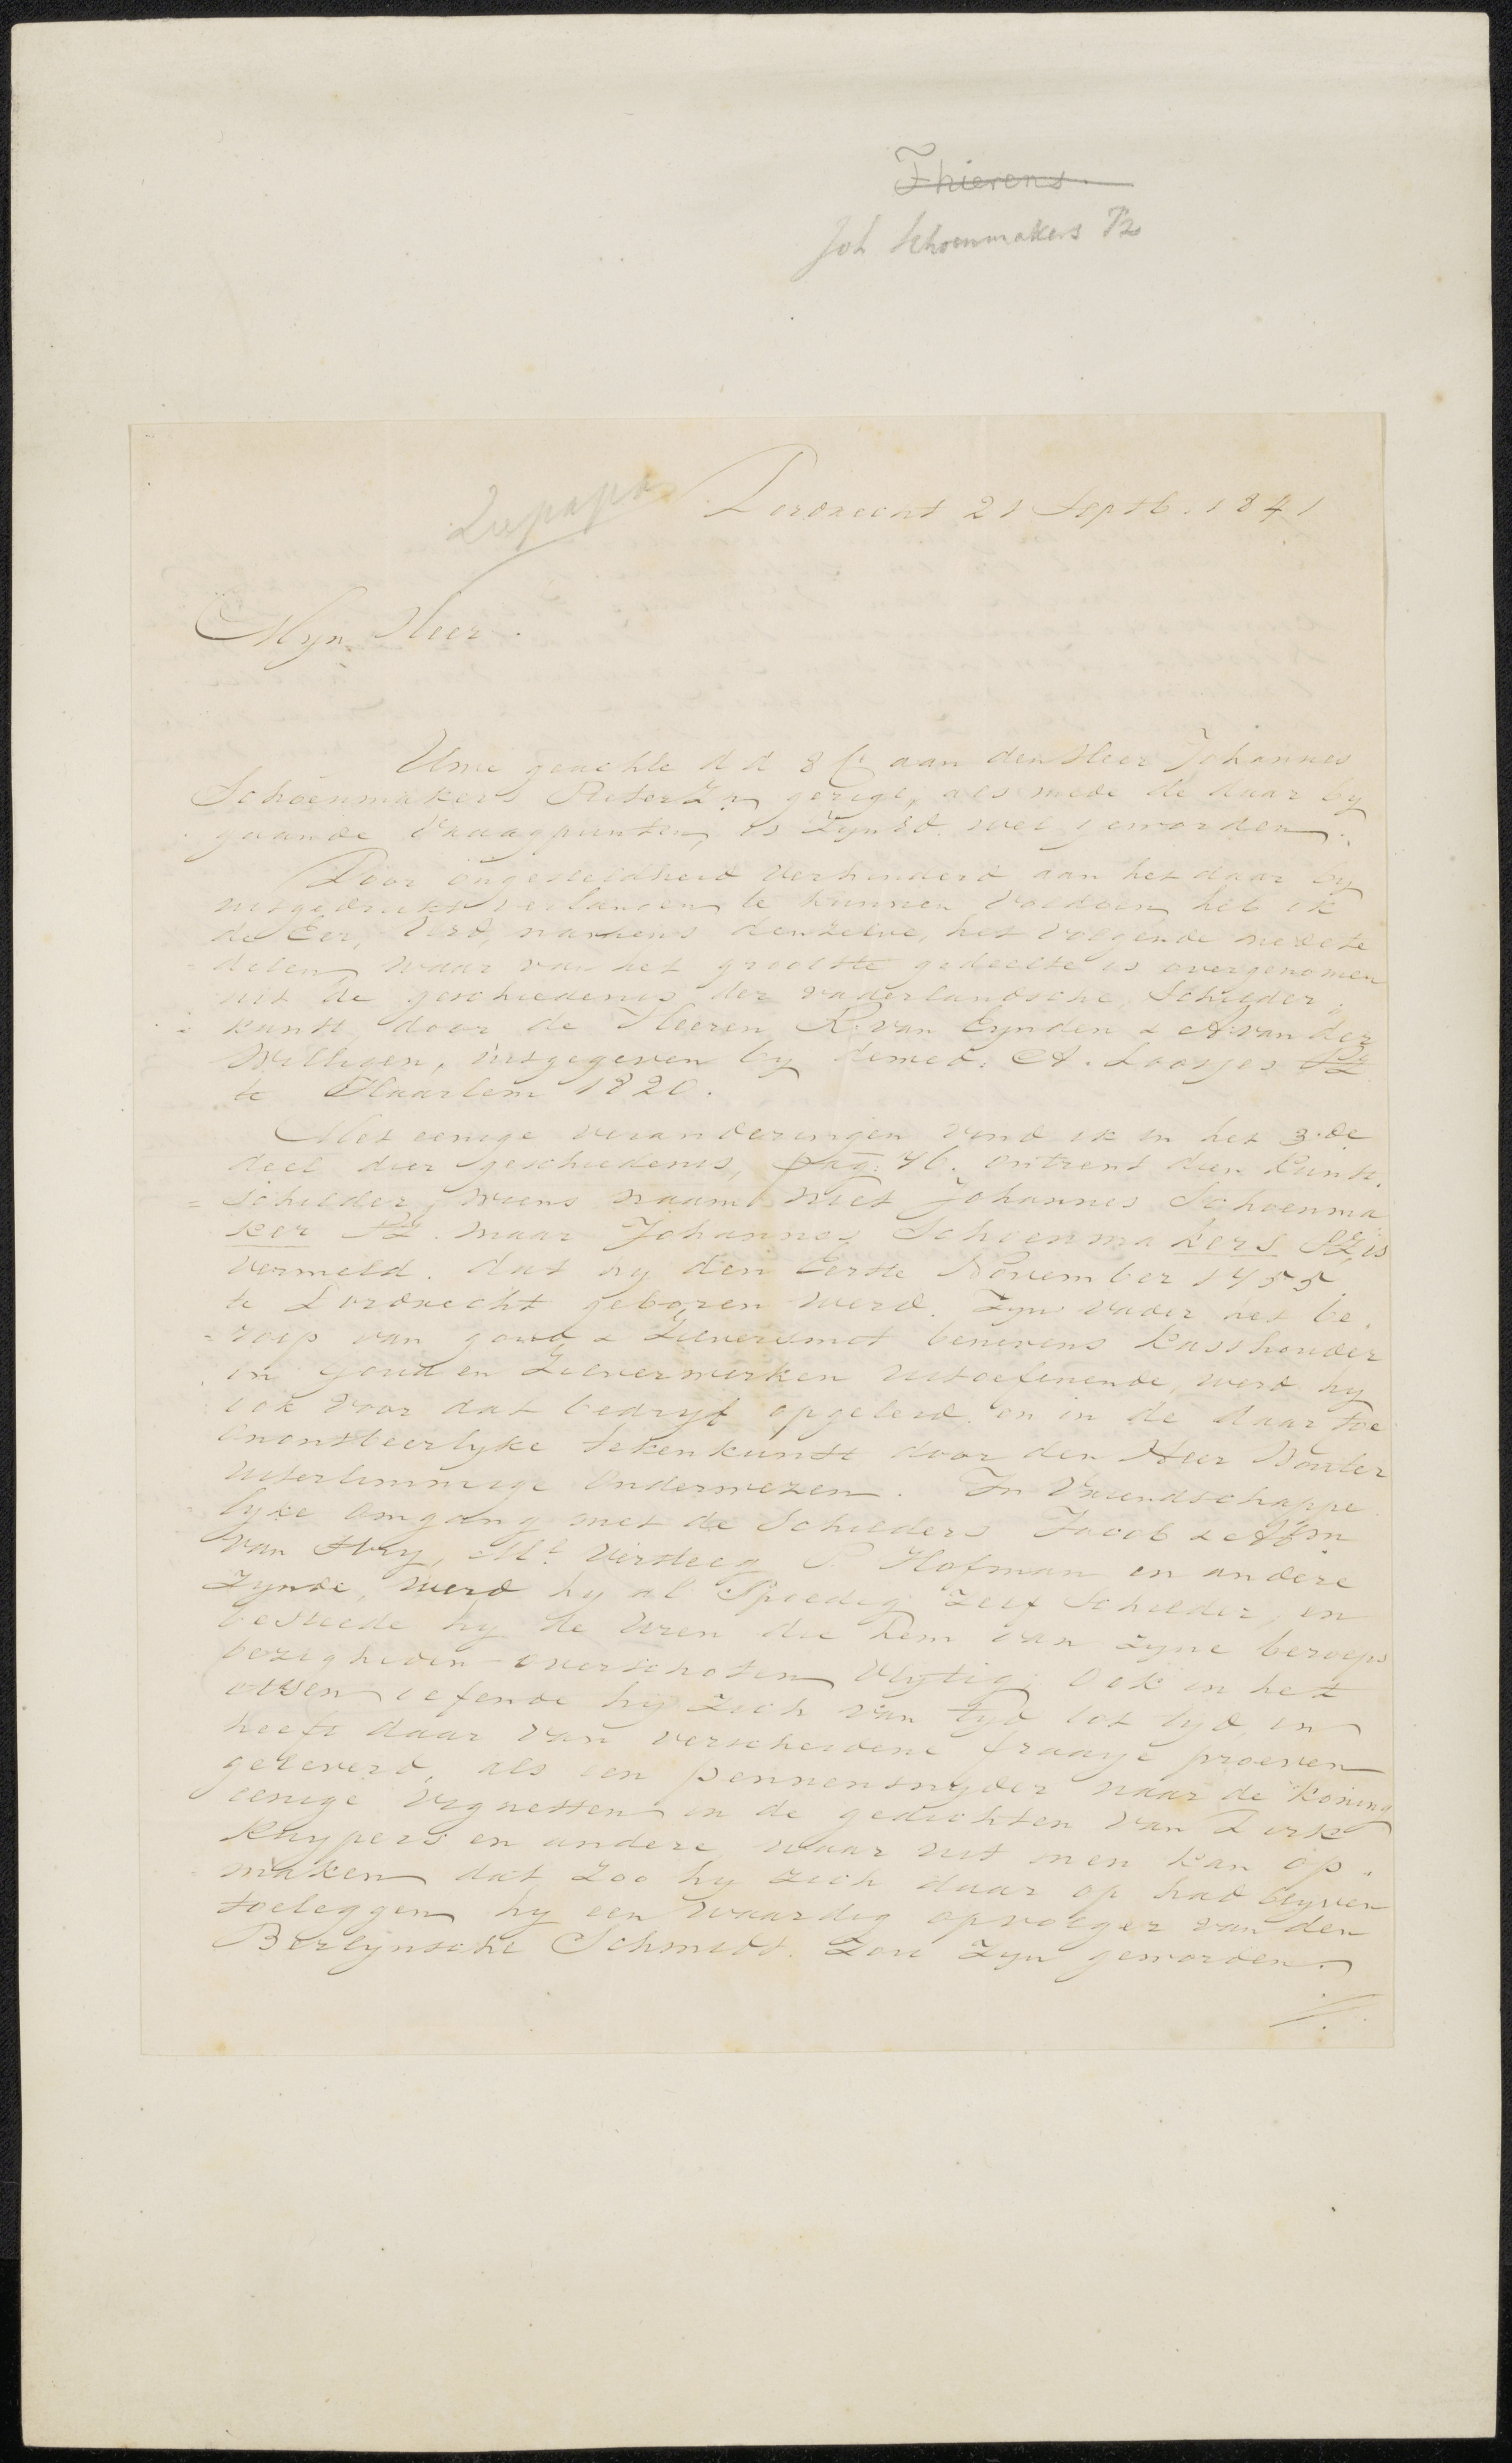 Thierens
Joh Schoenmakers Pz
Dordrecht 21 Septb. 1841
Myn Heer.
Uwe geachte d d 8 aan den Heer Johannes
Schoenmakers Pieterzn gerigt, als mede de daar by
gaande Vraagpunten, is ZynEd. wel geworden.
Door ongesteldheid verhinderd aan het daar by
uitgedrukt verlangen te kunnen voldoen heb ik
de Eer, UEd, namens denzelve, het volgende medete
= delen, waar van het grootste gedeelte is overgenomen
uit de geschiedenis der vaderlandsche Schilder,
= kunst, door de Heeren R. van Eynden & A. van der
Willigen, uitgegeven by A. Loosjes Pz
te Haarlem 1820.
Met eenige veranderingen vond ik in het 3.de
deel dier geschiedenis, pag: 76. omtrent dien Kunst.
= schilder, wiens naam niet Johannes Schoenma
ker Pz. maar Johannes Schoenmakers Pz, is
vermeld. dat hy den Eerste November 1755
te Dordrecht geboren werd. Zyn vader het be.
= roep van goud & Zilversmit benevens Kasshouder
in goud en Zilverwerken uitoefenende, werd hy
ook voor dat bedryf opgeleid. en in de daar toe
onontbeerlyke tekenkunst door den Heer Wouter
Uiterlimmige onderwezen. In Vriendschappe
= lyke omgang met de Schilders Jacob & Abm
van Stry, Ml. Versteeg P. Hofman en andere
zynde, werd hy al Spoedig zelf Schilder, en
besteede hy de uren die hem van zyne beroeps
bezigheden overschoten vlytig. Ook in het
etsen oefende hy zich van tyd tot tyd, en
heeft daar van verscheidene fraaye proeven
geleverd, als een pennensnyder naar de Koning
eenige vignetten in de gedichten van Dirk
Kuypers en andere waar uit men kan op.
maken dat zoo hy zich daar op had blyven
toeleggen hy een waardig opvolger van den
Berlynsche Schmidt. Zou zyn geworden.